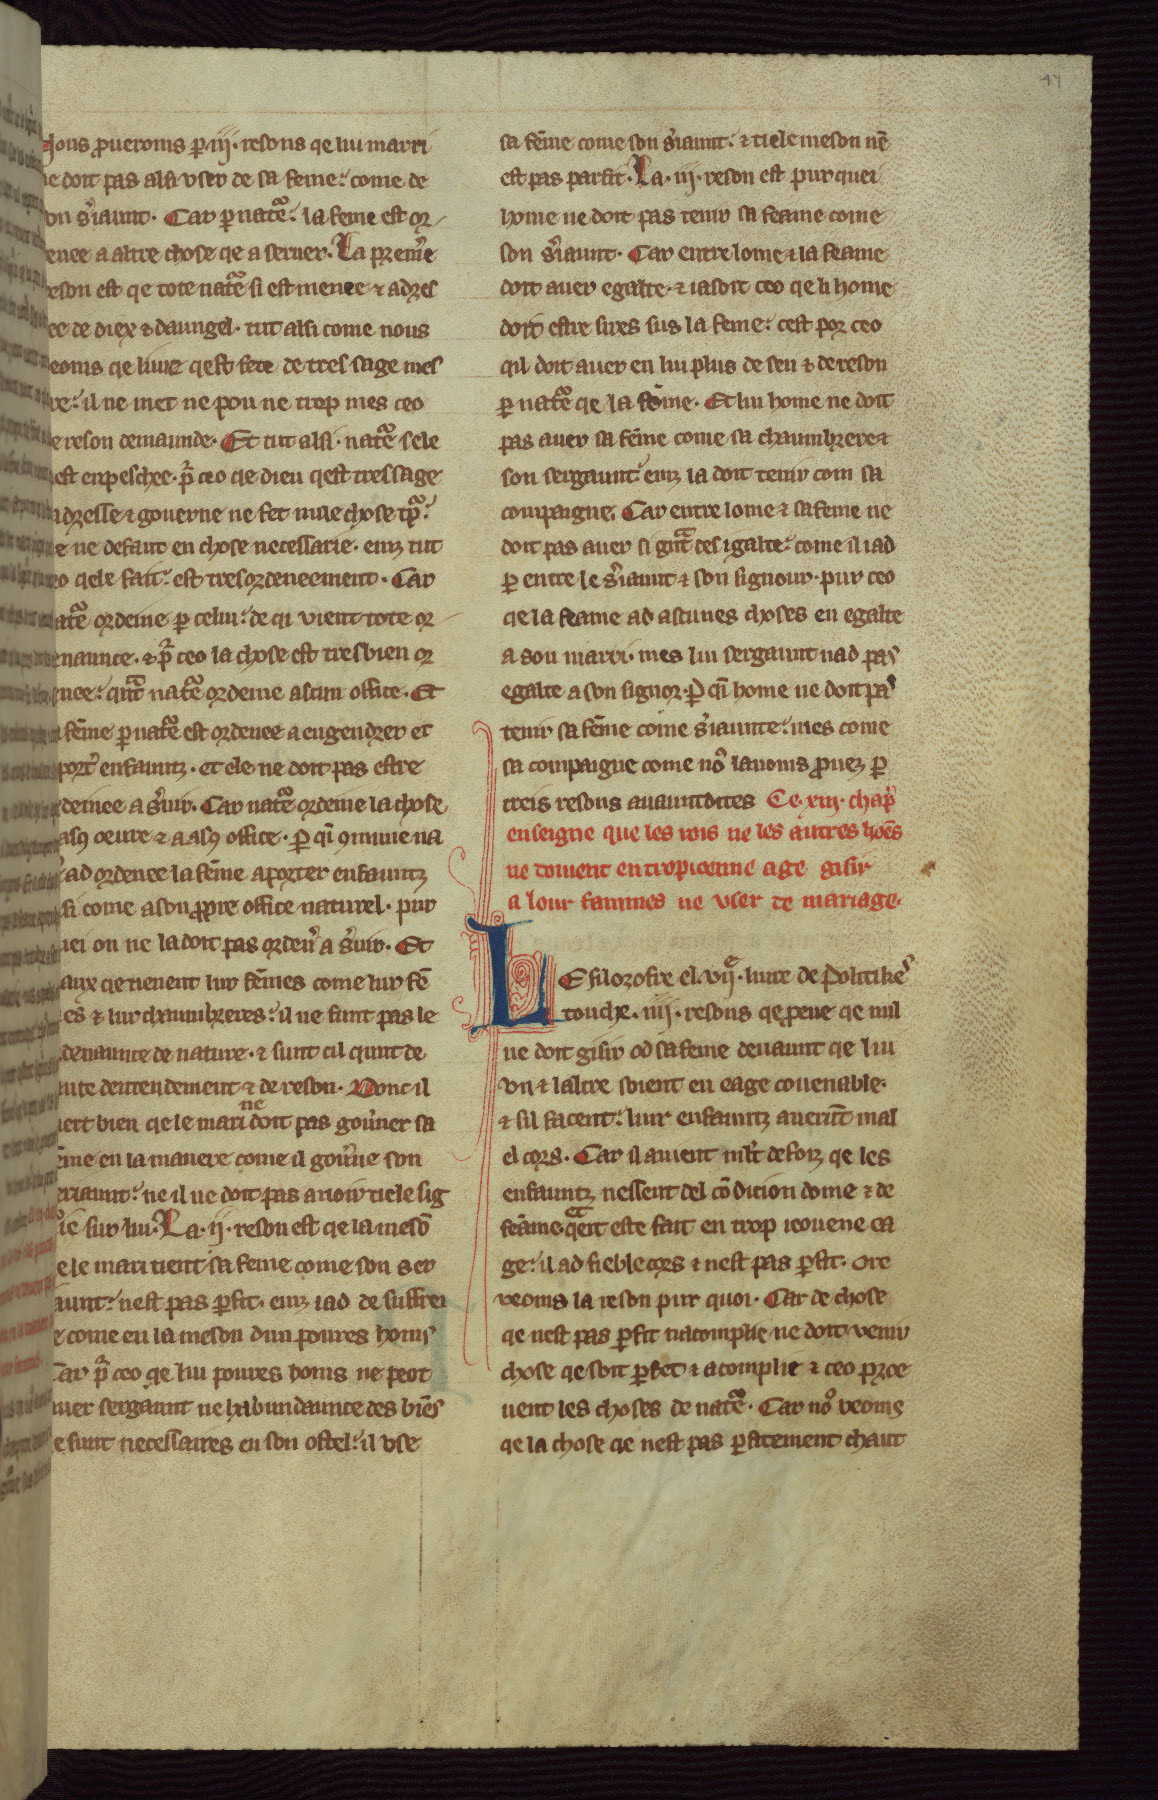 ons ꝓueroms ꝑ .iij. resons qe lui marri
ne doit pas alsi vser de sa feme: come de
son s̾iaunt. Car ꝑ nat̾e: la feme est or
enee a altre chose qe a seruer. La prem̾e
reson est qe tote nat̾e si est menee & adres
ee de diex & daungel. tut alsi come nous
ueoms qe liure qest fete de tres sage mes
re: il ne met ne pou ne trop mes ceo
e reson demaunde. Et tut alsi. nat̾e sele
est enpeschee. p̾ ceo qe dieu qest tressage
adresse & gouerne ne fet nule chose
e ne defaut en chose necessarie. einz tut
ceo qele fait: est tresordeneement. Car
nat̾e ordeine ꝑ celui: de qi vient tote or
enaunce. & p̾ ceo la chose est tresbien or
nee: qnt̾ nat̾e ordeine ascun office. Et
fēme ꝑ nat̾e est ordenee a engendrer et
port̾ enfauntz. et ele ne doit pas estre
rdeinee a s̾uir. Car nat̾e ordeine la chose
a oeure & a office. ꝑ qi na
ad ordenee la fēme a porter enfauntz
si come a son ꝓpre office naturel. pur
uei on ne la doit pas orden̾ a s̾uir. Et
aux qe tienent lur fēmes come lur fē
es & lur chaumbreres: il ne sunt pas le
denaunce de nature. & sunt cil qunt de
aute dentendement & de reson. Donc il
iert bien qe le mari ne doit pas gou̾ner sa
ēme en la manere come il gou̾ne son
eriaunt: ne il ne doit pas auoir tiele sig
sur lui. La .ij. reson est qe la mesō
e le mari tient sa feme come son ser
iaunt: nest pas ꝑfit. einz iad de suffrei
e come en la meson dun poures homs
Car p̾ ceo qe lui poures homs ne peot
auer sergaunt ne habundaunce des biēs
e sunt necessaires en son ostel: il vse
sa fēme come son s̾iaunt: & tiele meson nē
est pas parfit. La .iij. reson est pur quei
home ne doit pas tenir sa feame come
son s̾iaunt. Car entre lome & la feame
doit auer egalte. & iasoit ceo qe li home
doit estre sires sus la feme: cest por ceo
qil doit auer en lui plus de sen & de reson
ꝑ nat̾e qe la feme. Et lui home ne doit
pas auer sa fēme come sa chaumbrere &
son sergaunt: einz la doit tenir com sa
compaigne. Car entre lome & sa feme ne
doit pas auer si gnt̾ des igalte: come il iad
ꝑ entre le s̾iaunt & son signour. pur ceo
qe la feame ad ascunes choses en egalte
a son marri. mes lui sergaunt nad pas
egalte a son signor. ꝑ qi home ne doit pas
tenir sa fēme come s̾iaunte: mes come
sa compaigne come no9 lauoms ꝓuez ꝑ
treis resons auauntdites Ce .xiij. chap̾
enseigne que les rois ne les autres hoēs
ne doiuent en trop ienne age gisir
a lour fammes ne vser de mariage.
LE filozofre el .vij. liure de Politikes
touche .iiij. resons qe preue qe nul
ne doit gisir od sa feme deuaunt qe lui
vn & laltre soient en eage couenable.
& sil facent: lur enfauntz auerūt mal
el cors. Car il auient mlt̾ de forz qe les
enfauntz nessent del cōdicion dome & de
feāme. qent este fait en trop icouene ea
ge: il ad fieble cors & nest pas ꝑfit. Ore
veoms la reson pur quoi. Car de chose
qe nest pas ꝑfit nacomplie ne doit venir
chose qe soit ꝑfet & acomplie & ceo proe
uent les choses de nat̾e. Car no9 veoms
qe la chose qe nest pas ꝑfitement chaut